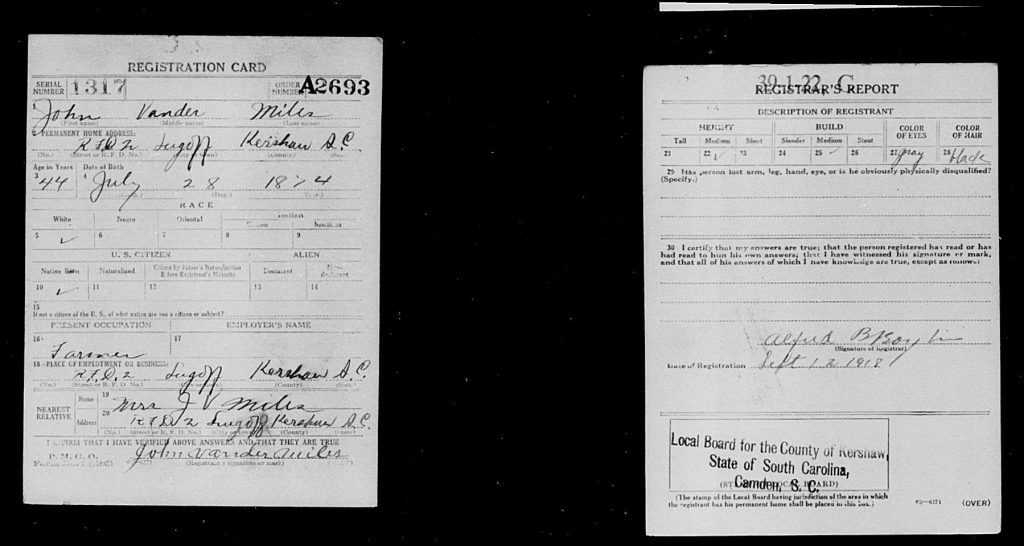 REGISTRATION CARD
SERIAL NUMBER 1317 ORDER NUMBER A2693
1 John Vander Miles
(First name) (Middle name) (Last name)
2 PERMANENT HOME ADDRESS:
R.F.D. 2 Lugoff Kershaw S.C.
(No.) (Street or R. F. D. No.) (County) (State)
Age in Years Date of Birth
3 44 July 28 1874
RACE
White Negro Oriental Indian
Citizen Noncitizen
5 ✓ 6 7 8 9
U. S. CITIZEN ALIEN
Native Born Naturalized Citizen by Father's Naturalization Before Registrant's Majority Declarant Non-declarant
10 ✓ 11 12 13 14
15
If not a citizen of the U. S., of what nation are you a citizen or subject?
PRESENT OCCUPATION EMPLOYER'S NAME
16 Farmer 17
18 PLACE OF EMPLOYMENT OR BUSINESS:
R.F.D. 2 Lugoff Kershaw S.C.
(No.) (Street or R. F. D. No.) (County) (State)
NEAREST RELATIVE Name 19 Mrs J V Miles
Address 20 R.F.D. 2 Lugoff Kershaw S.C.
(No.) (Street or R. F. D. No.) (County) (State)
I AFFIRM THAT I HAVE VERIFIED ABOVE ANSWERS AND THAT THEY ARE TRUE
P. M. G. O.
John Vander Miles
(Registrant's signature or mark)
39-1-22 C
REGISTRAR'S REPORT
DESCRIPTION OF REGISTRANT
HEIGHT BUILD COLOR OF EYES COLOR OF HAIR
Tall Medium Short Slender Medium Stout
21 22 ✓ 23 24 25 ✓ 26 27 gray 28 black
29 Has person lost arm, leg, hand, eye, or is he obviously physically disqualified?
(Specify.)
30 I certify that my answers are true; that the person registered has read or has
had read to him his own answers; that I have witnessed his signature or mark,
and that all of his answers of which I have knowledge are true, except as follows:
Alfred
(Signature of Registrar)
Date of Registration Sept 12 1918
Local Board for the County of Kershaw,
State of South Carolina,
Camden, S. C.
(STAMP OF LOCAL BOARD)
(The stamp of the Local Board having jurisdiction of the area in which
the registrant has his permanent home shall be placed in this box.)
63—6171 (OVER)